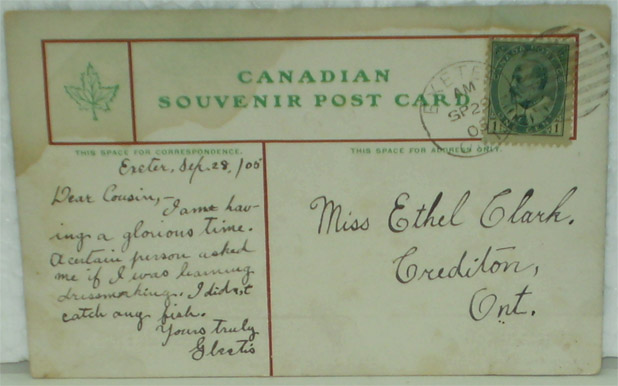 CANADIAN
SOUVENIR POST CARD
CANADA POSTAGE
1 ONE CENT 1
EXETER
AM
SP 28
THIS SPACE FOR CORRESPONDENCE.
THIS SPACE FOR ADDRESS ONLY.
Exeter, Sep. 28, /05
Dear Cousin,-
I am hav-
ing a glorious time.
A certain person asked
me if I was learning
dressmaking. I didn't
catch any fish.
Yours truly
Miss Ethel Clark.
Crediton,
Ont.